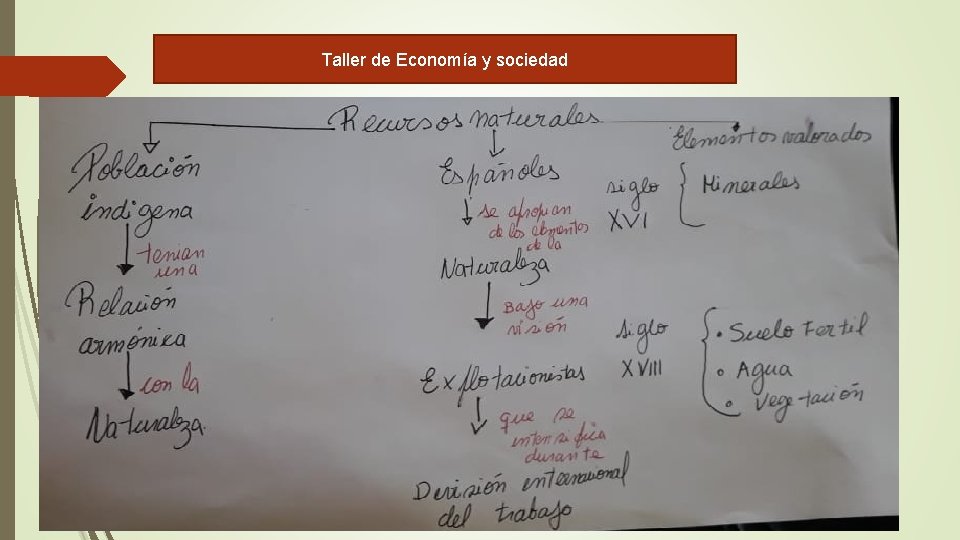 Taller de Economía y sociedad
Recursos naturales
Población
indigena
tenian
una
Relación
armónica
con la
Naturaleza.
Españoles
se apropian
de los elementos
de la
Naturaleza
Bajo una
visión
Explotacionistas
que se
intensifica
durante
División internacional
del trabajo
Elementos valorados
siglo
XVI
Minerales
siglo
XVIII
• Suelo Fertil
• Agua
• Vegetación